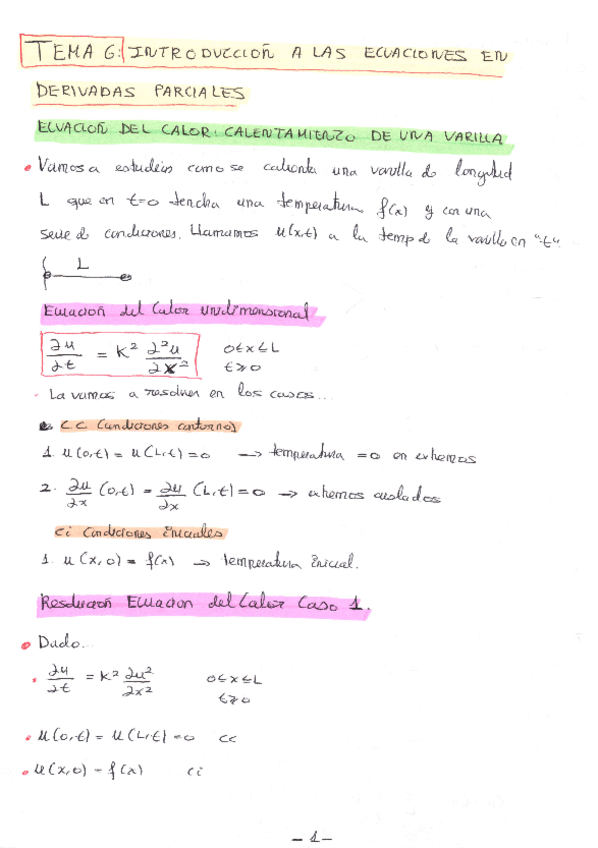 TEMA 6: INTRODUCCIOÑ A LAS ECUACIONES EN
DERIVADAS PARCIALES
ECUACIOÑ DEL CALOR: CALENTAMIENZO DE UNA VARILLA
• Vamos a estudiar como se calienta una varilla de longitud
L que en t=0 tendra una temperatura f(x) y con una
serie de condiciones. Llamamos u(x,t) a la temp de la varilla en "t"
L
Ecuacion del Calor unidimensional
∂u/∂t = K² ∂²u/∂x² 0≤x≤L t≥0
- La vamos a resolver en los casos...
CC (condiciones contorno)
1. u(0,t) = u(L,t) = 0 → temperatura = 0 en extremos
2. ∂u/∂x (0,t) = ∂u/∂x (L,t) = 0 → extremos aislados
Ci Condiciones Iniciales
1. u(x,0) = f(x) → temperatura inicial.
Resolucion Ecuacion del Calor Caso 1.
• Dado...
• ∂u/∂t = K² ∂u²/∂x² 0≤x≤L t≥0
• u(0,t) = u(L,t) = 0 cc
• u(x,0) = f(x) ci
- 1 -